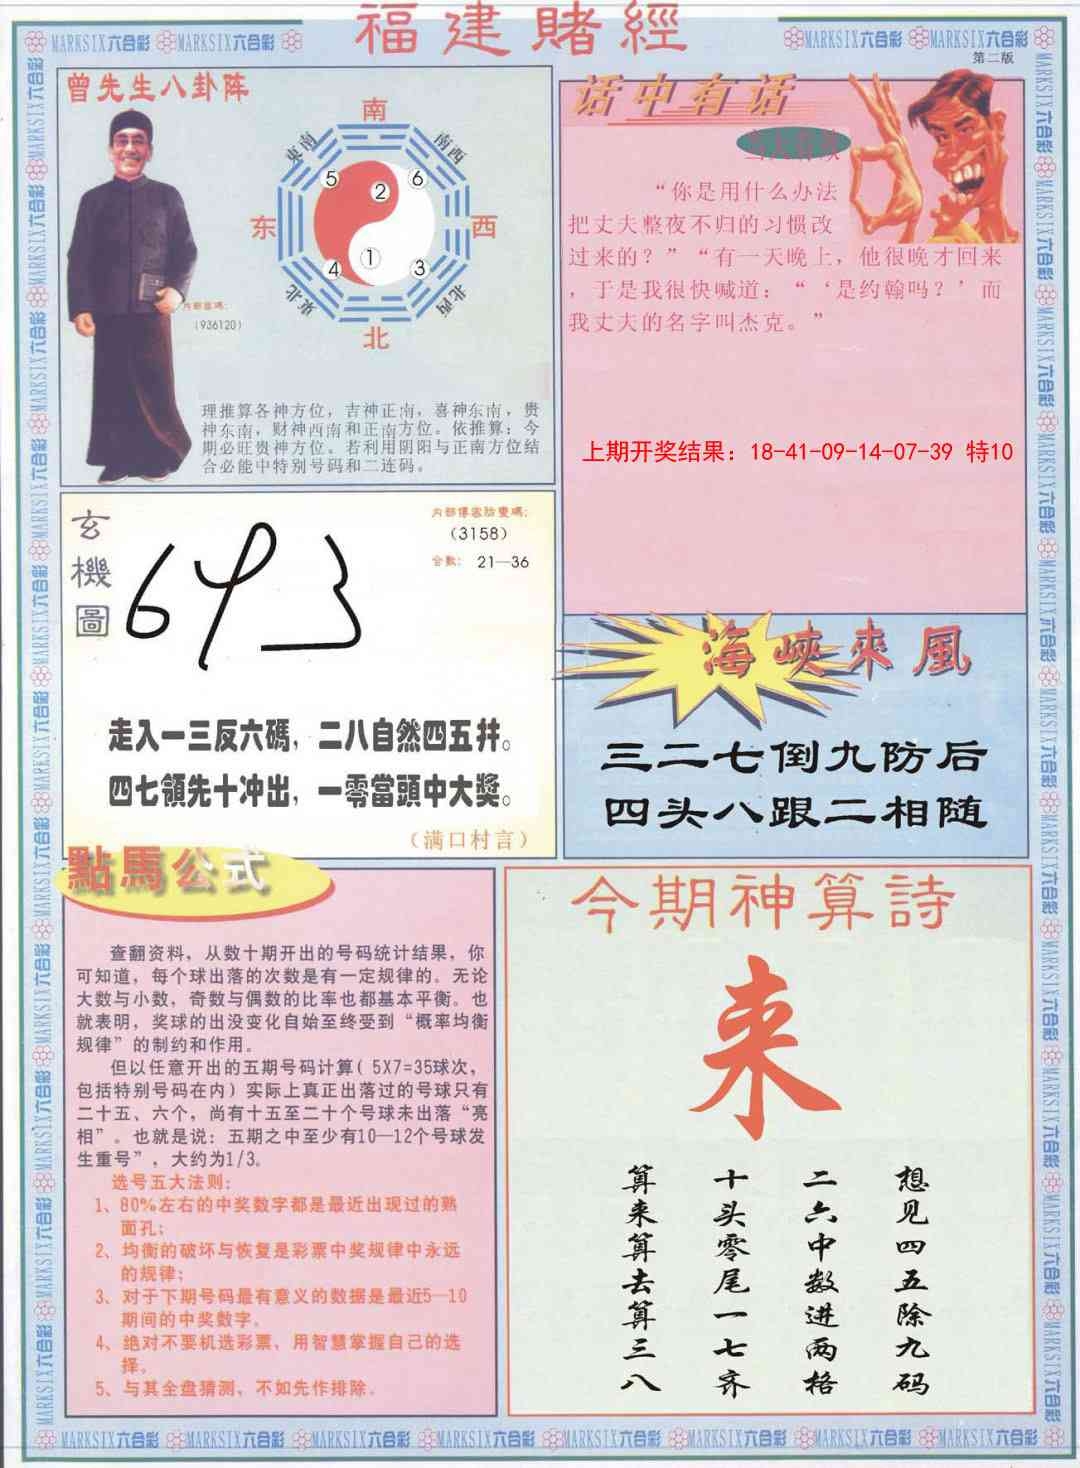 福建賭經
MARKSIX六合彩 MARKSIX六合彩
MARKSIX六合彩 MARKSIX六合彩
第二版
曾先生八卦阵
南
東南
南西
5
2
6
东
西
1
4
3
東北
北西
北
内部密碼:
(936120)
理推算各神方位，吉神正南，喜神东南，贵
神东南，财神西南和正南方位。依推算：今
期必旺贵神方位。若利用阴阳与正南方位结
合必能中特别号码和二连码。
话中有话
“你是用什么办法
把丈夫整夜不归的习惯改
过来的？”“有一天晚上，他很晚才回来
，于是我很快喊道：“‘是约翰吗？’而
我丈夫的名字叫杰克。”
上期开奖结果：18-41-09-14-07-39 特10
玄機圖
内部傳密胎靈碼:
(3158)
合数: 21—36
走入一三反六碼，二八自然四五拜。
四七領先十冲出，一零當頭中大獎。
（满口村言）
海峽來風
三二七倒九防后
四头八跟二相随
點馬公式
查翻资料，从数十期开出的号码统计结果，你
可知道，每个球出落的次数是有一定规律的。无论
大数与小数，奇数与偶数的比率也都基本平衡。也
就表明，奖球的出没变化自始至终受到“概率均衡
规律”的制约和作用。
但以任意开出的五期号码计算( 5X7=35球次，
包括特别号码在内）实际上真正出落过的号球只有
二十五、六个，尚有十五至二十个号球未出落“亮
相”。也就是说：五期之中至少有10—12个号球发
生重号”，大约为1/3。
选号五大法则：
1、80%左右的中奖数字都是最近出现过的熟
面孔；
2、均衡的破坏与恢复是彩票中奖规律中永远
的规律；
3、对于下期号码最有意义的数据是最近5—10
期间的中奖数字。
4、绝对不要机选彩票，用智慧掌握自己的选
择。
5、与其全盘猜测，不如先作排除。
今期神算詩
来
想见四五除九码
二六中数进两格
十头零尾一七齐
算来算去算三八
MARKSIX六合彩 MARKSIX六合彩 MARKSIX六合彩 MARKSIX六合彩 MARKSIX六合彩 MARKSIX六合彩 MARKSIX六合彩 MARKSIX六合彩